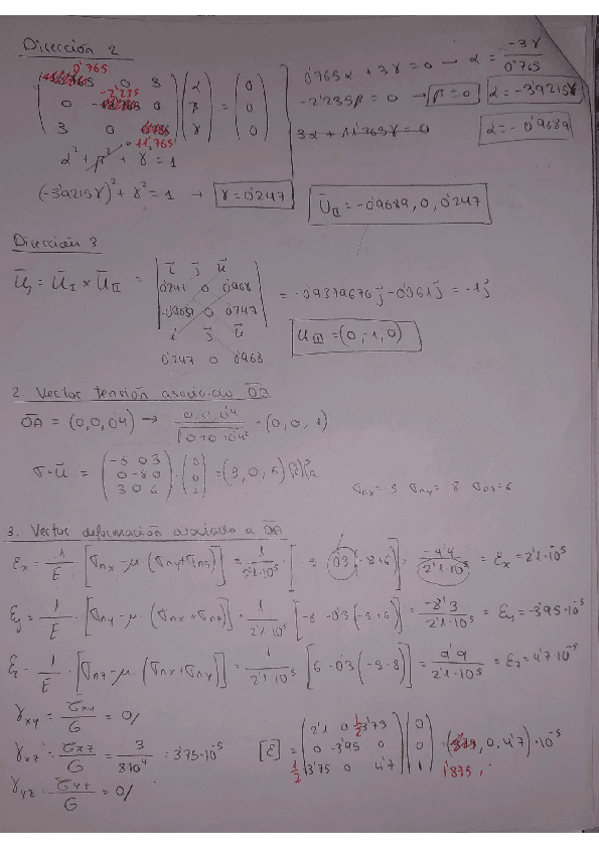 Dirección 2
0'765
( 0 3 ) ( α ) ( 0 )
( 0 -2'235 0 ) ( β ) = ( 0 )
( 3 0 11'765 ) ( γ ) ( 0 )
α² + β² + γ = 1
(-3'9215γ)² + γ² = 1 → γ = 0'247
0'765α + 3γ = 0 → α = -3γ / 0'765
-2'235β = 0 → β = 0 α = -3'9215γ
3α + 11'765γ = 0 α = -0'9689
U̅_II = -0'9689, 0, 0'247
Dirección 3
U̅_3 = U̅_I × U̅_II = | i j u |
| 0'247 0 0'968 |
| -0'9689 0 0'247 |
i j u
0'247 0 0'968
= -0'9379676 j - 0'061 j = -1 j
U_III = (0, -1, 0)
2. Vector tensión asociado OA
OA = (0,0,0'4) → 0,0,0'4 / √0+0+0'4² = (0,0,1)
σ·u̅ = ( -5 0 3 ) ( 0 )
( 0 -8 0 ) · ( 0 ) = (3, 0, 6)
( 3 0 6 ) ( 1 )
σnx = -5 σny = -8 σnz = 6
3. Vector deformación asociado a OA
εx = 1/E · [σnx - μ · (σny + σnz)] = 1/2'1·10⁵ · [-5 - 0'3 (-8+6)] = -4'4 / 2'1·10⁵ = εx = 2'1·10⁻⁵
εy = 1/E · [σny - μ · (σnx + σnz)] = 1/2'1·10⁵ [-8 - 0'3 (-5+6)] = -8'3 / 2'1·10⁵ = εy = -3'95·10⁻⁵
εz = 1/E · [σnz - μ · (σnx + σny)] = 1/2'1·10⁵ [6 - 0'3 (-5-8)] = 9'9 / 2'1·10⁵ = εz = 4'7·10⁻⁵
γxy = τxy / G = 0//
γxz = τxz / G = 3 / 8·10⁴ = 3'75·10⁻⁵
γyz = τyz / G = 0//
[ε] = ( 2'1 0 ½ 3'75 ) ( 0 )
( 0 -3'95 0 ) ( 0 ) = ( , 0, 4'7)·10⁻⁵
( ½ 3'75 0 4'7 ) ( 1 ) 1'875,